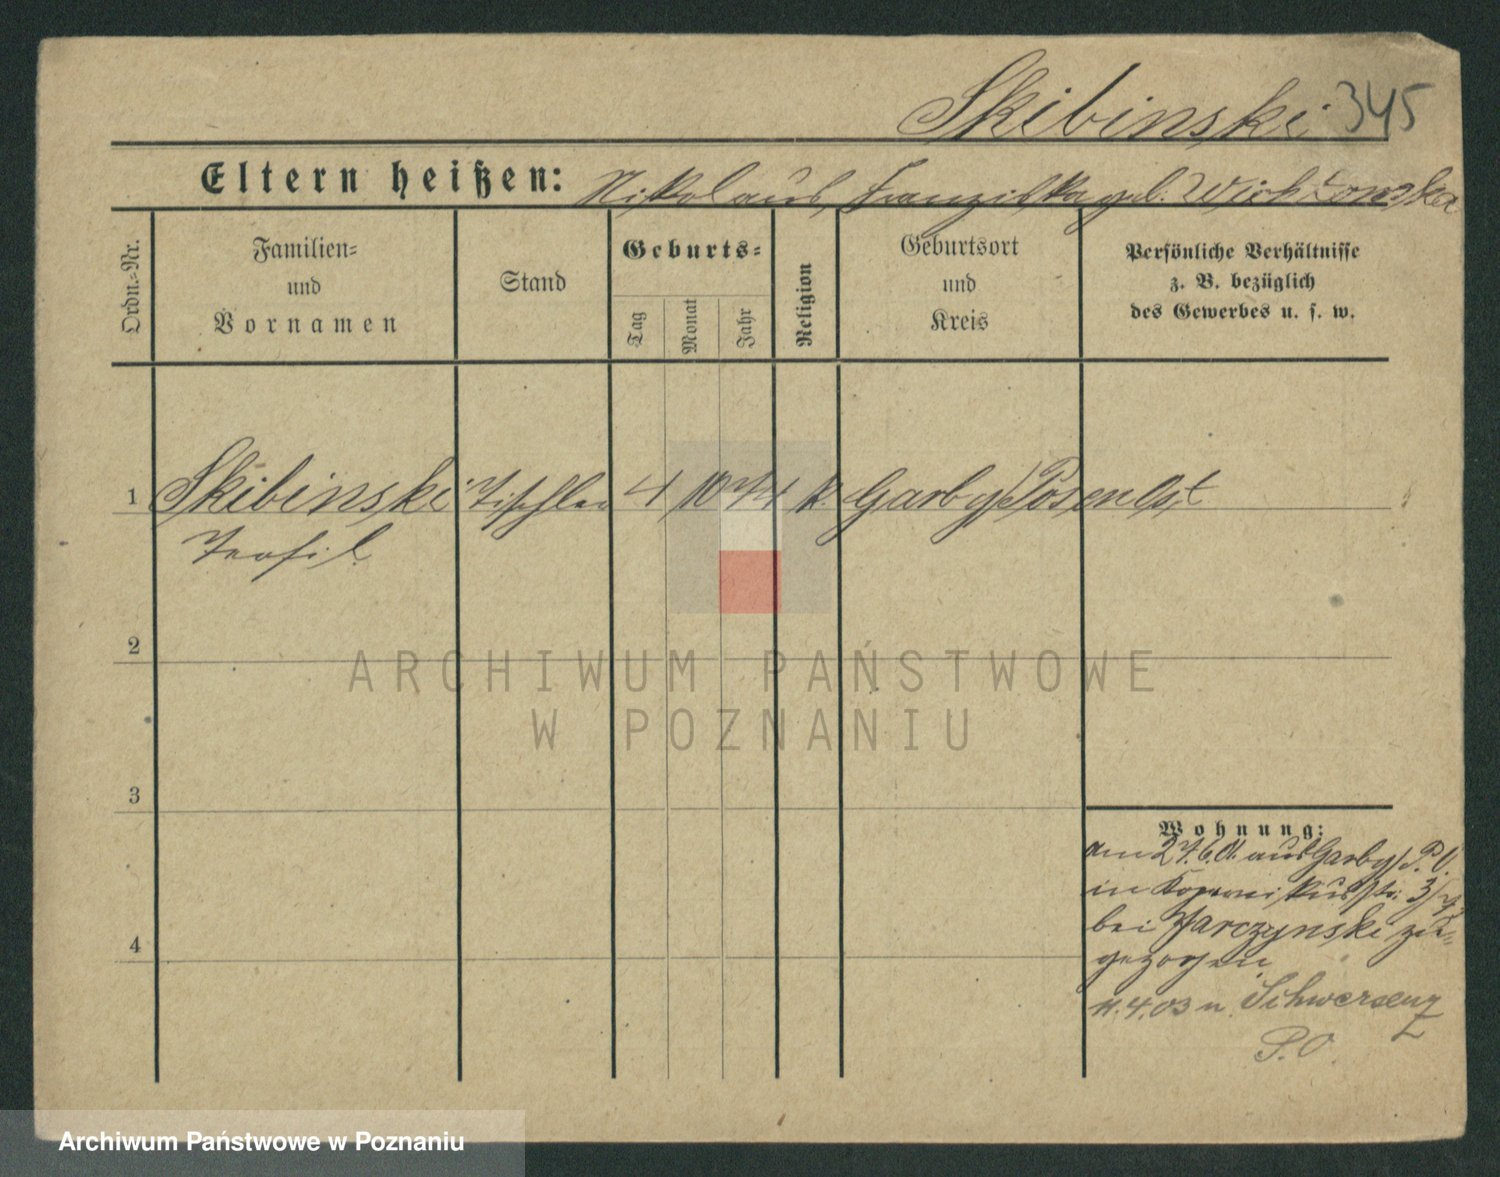 Skibinski 345
Eltern heißen: Nikolaus, Franziska geb.
Ordn.-Nr.
Familien-
und
Vornamen
Stand
Geburts-
Tag
Monat
Jahr
Religion
Geburtsort
und
Kreis
Persönliche Verhältnisse
z. B. bezüglich
des Gewerbes u. s. w.
1 Skibinski Tischler 4 10 74 K. Garby Posen Ost
Teofil
2
ARCHIWUM PAŃSTWOWE
W POZNANIU
3
Wohnung:
am 27.6.01. aus Garby, P. O.
in Kopernikusstr. 3
bei Jarczynski zu-
gezogen
4
4.03 n. Schwersenz
P.O.
Archiwum Państwowe w Poznaniu